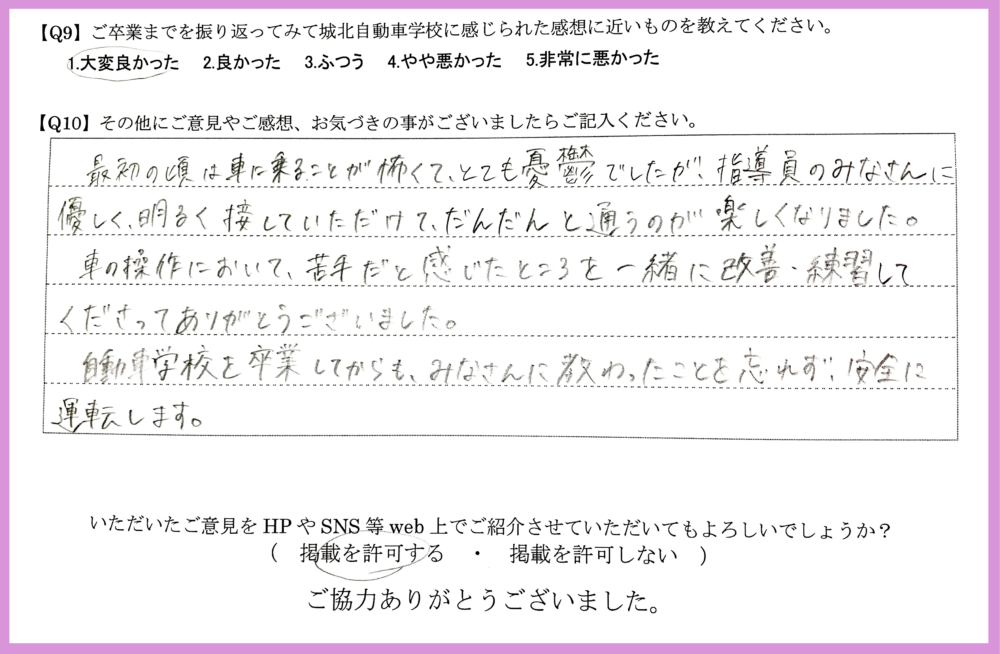 【Q9】ご卒業までを振り返ってみて城北自動車学校に感じられた感想に近いものを教えてください。
1.大変良かった 2.良かった 3.ふつう 4.やや悪かった 5.非常に悪かった
【Q10】その他にご意見やご感想、お気づきの事がございましたらご記入ください。
最初の頃は車に乗ることが怖くて、とても憂鬱でしたが、指導員のみなさんに
優しく、明るく接していただけて、だんだんと通うのが楽しくなりました。
車の操作において、苦手だと感じたところを一緒に改善・練習して
くださってありがとうございました。
自動車学校を卒業してからも、みなさんに教わったことを忘れず、安全に
運転します。
いただいたご意見をHPやSNS等web上でご紹介させていただいてもよろしいでしょうか？
( 掲載を許可する ・ 掲載を許可しない )
ご協力ありがとうございました。